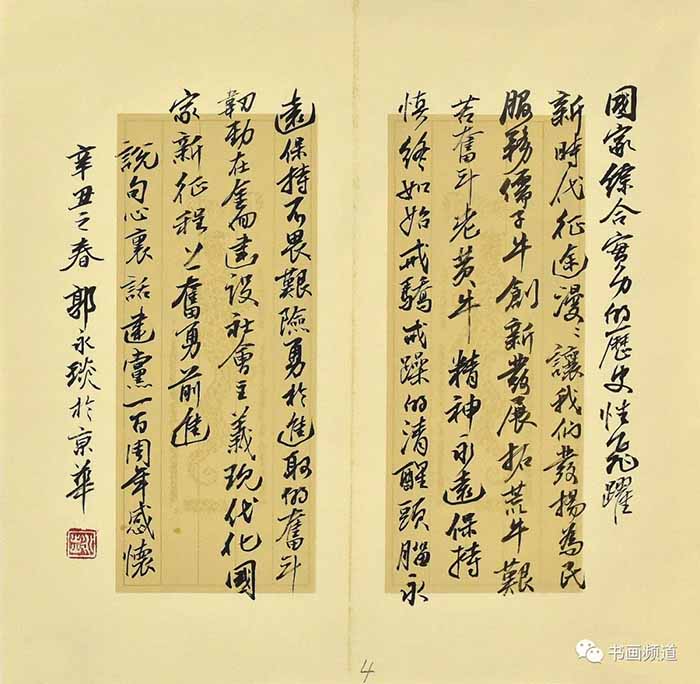 國家综合實力的歷史性飛躍
新時代征途漫漫讓我們發揚為民
服務孺子牛創新發展拓荒牛艱
苦奮斗老黄牛精神永遠保持
慎终如始戒驕戒躁的清醒頭腦永
遠保持不畏艱險勇於進取的奮斗
韌勁在全面建设社會主義现代化國
家新征程上奮勇前進
說句心裏話建黨一百周年感懷
辛丑之春郭永琰於京華
4
书画频道